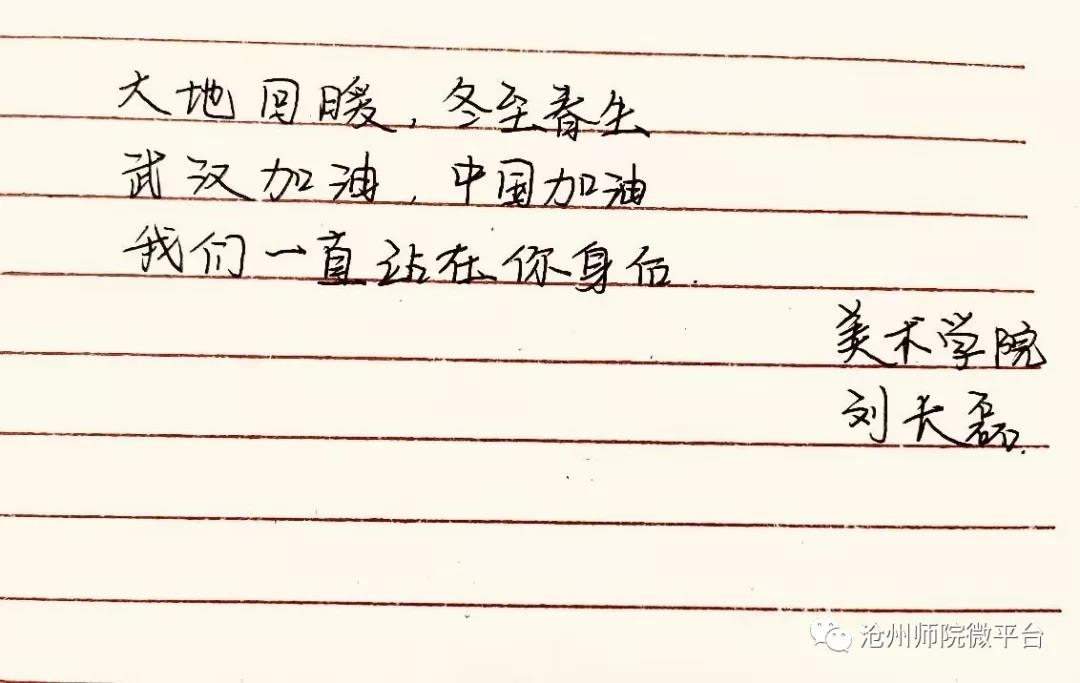 大地回暖,冬至春生
武汉加油,中国加油
我们一直站在你身后.
美术学院
刘长磊.
沧州师院微平台